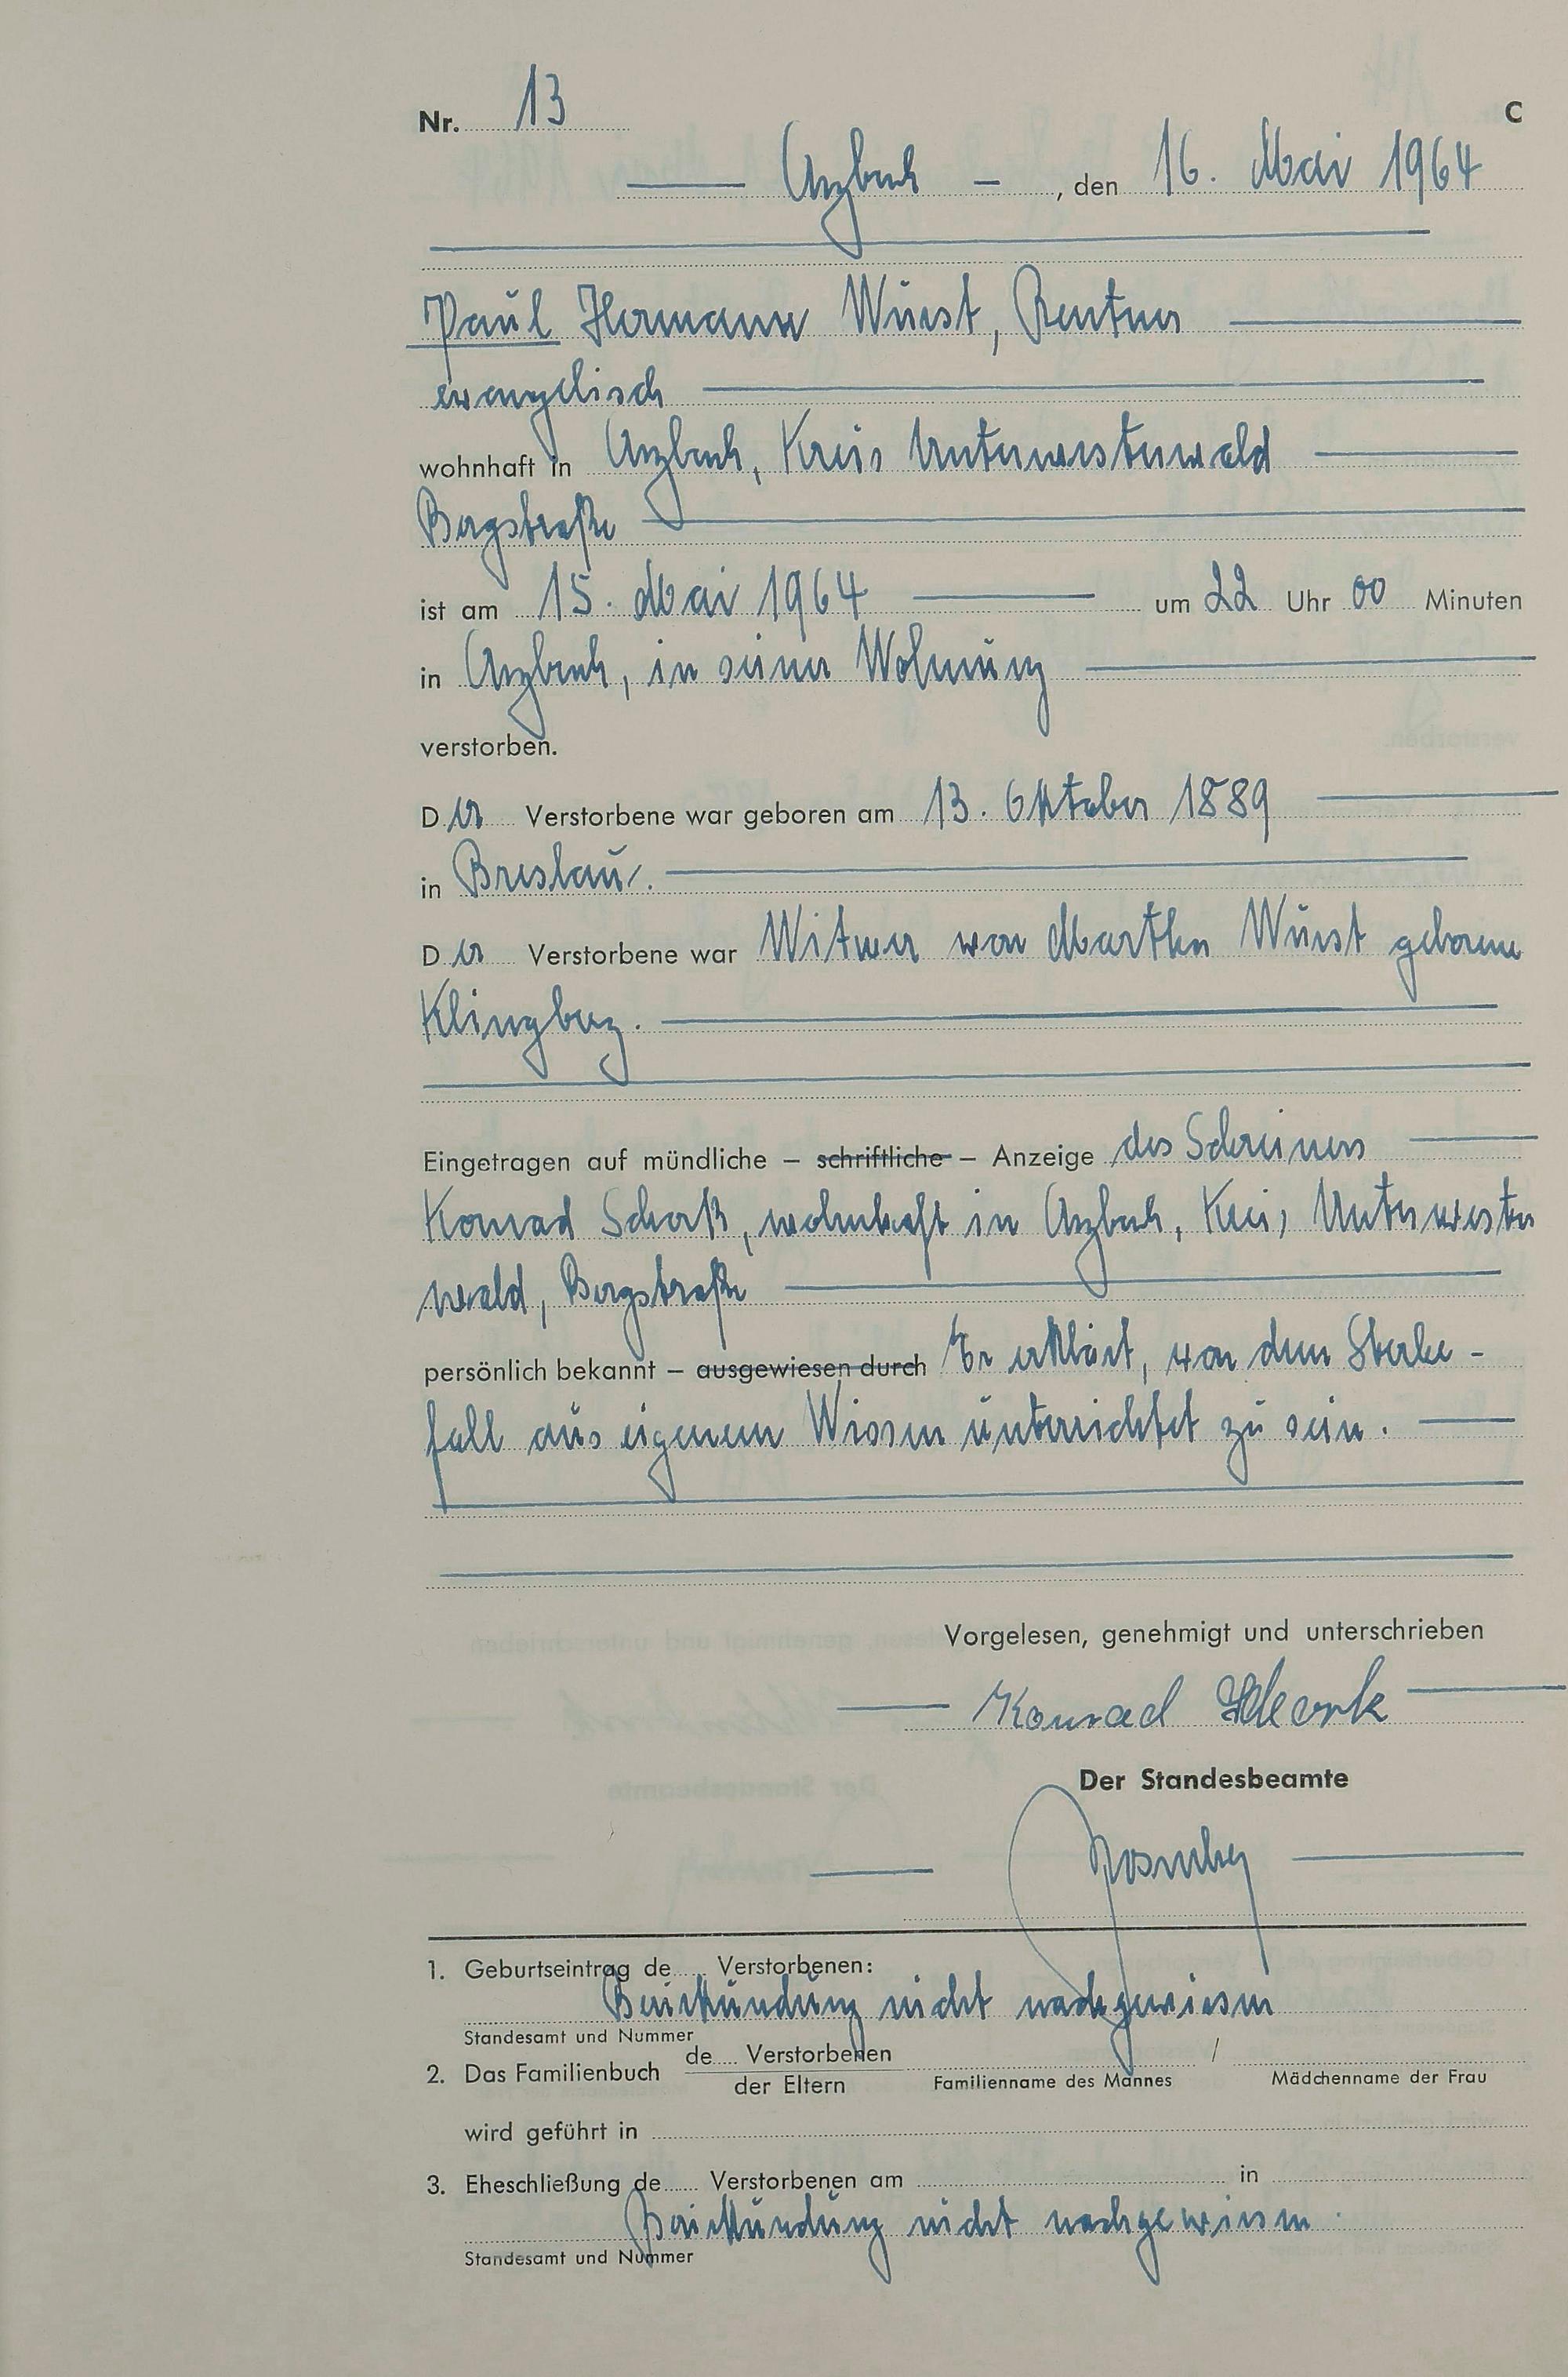 Nr. 13 C
Arzbach, den 16. Mai 1964
Paul Hermann Wurst, Rentner
evangelisch
wohnhaft in Arzbach, Kreis Unterwesterwald
Bergstraße
ist am 15. Mai 1964 um 22 Uhr 00 Minuten
in Arzbach, in seiner Wohnung
verstorben.
Der Verstorbene war geboren am 13. Oktober 1889
in Breslau.
Der Verstorbene war Witwer von Martha Wurst geborene
Klingberg.
Eingetragen auf mündliche – schriftliche – Anzeige des Schreiners
Konrad, wohnhaft in Arzbach, Kreis Unterwester
wald, Bergstraße
persönlich bekannt – ausgewiesen durch Er erklärt, von dem Sterbe-
fall aus eigenem Wissen unterrichtet zu sein.
Vorgelesen, genehmigt und unterschrieben
Konrad
Der Standesbeamte
1. Geburtseintrag de Verstorbenen:
Beurkundung nicht nachgewiesen
Standesamt und Nummer
2. Das Familienbuch de Verstorbenen /
der Eltern Familienname des Mannes Mädchenname der Frau
wird geführt in
3. Eheschließung de Verstorbenen am in
Beurkundung nicht nachgewiesen.
Standesamt und Nummer